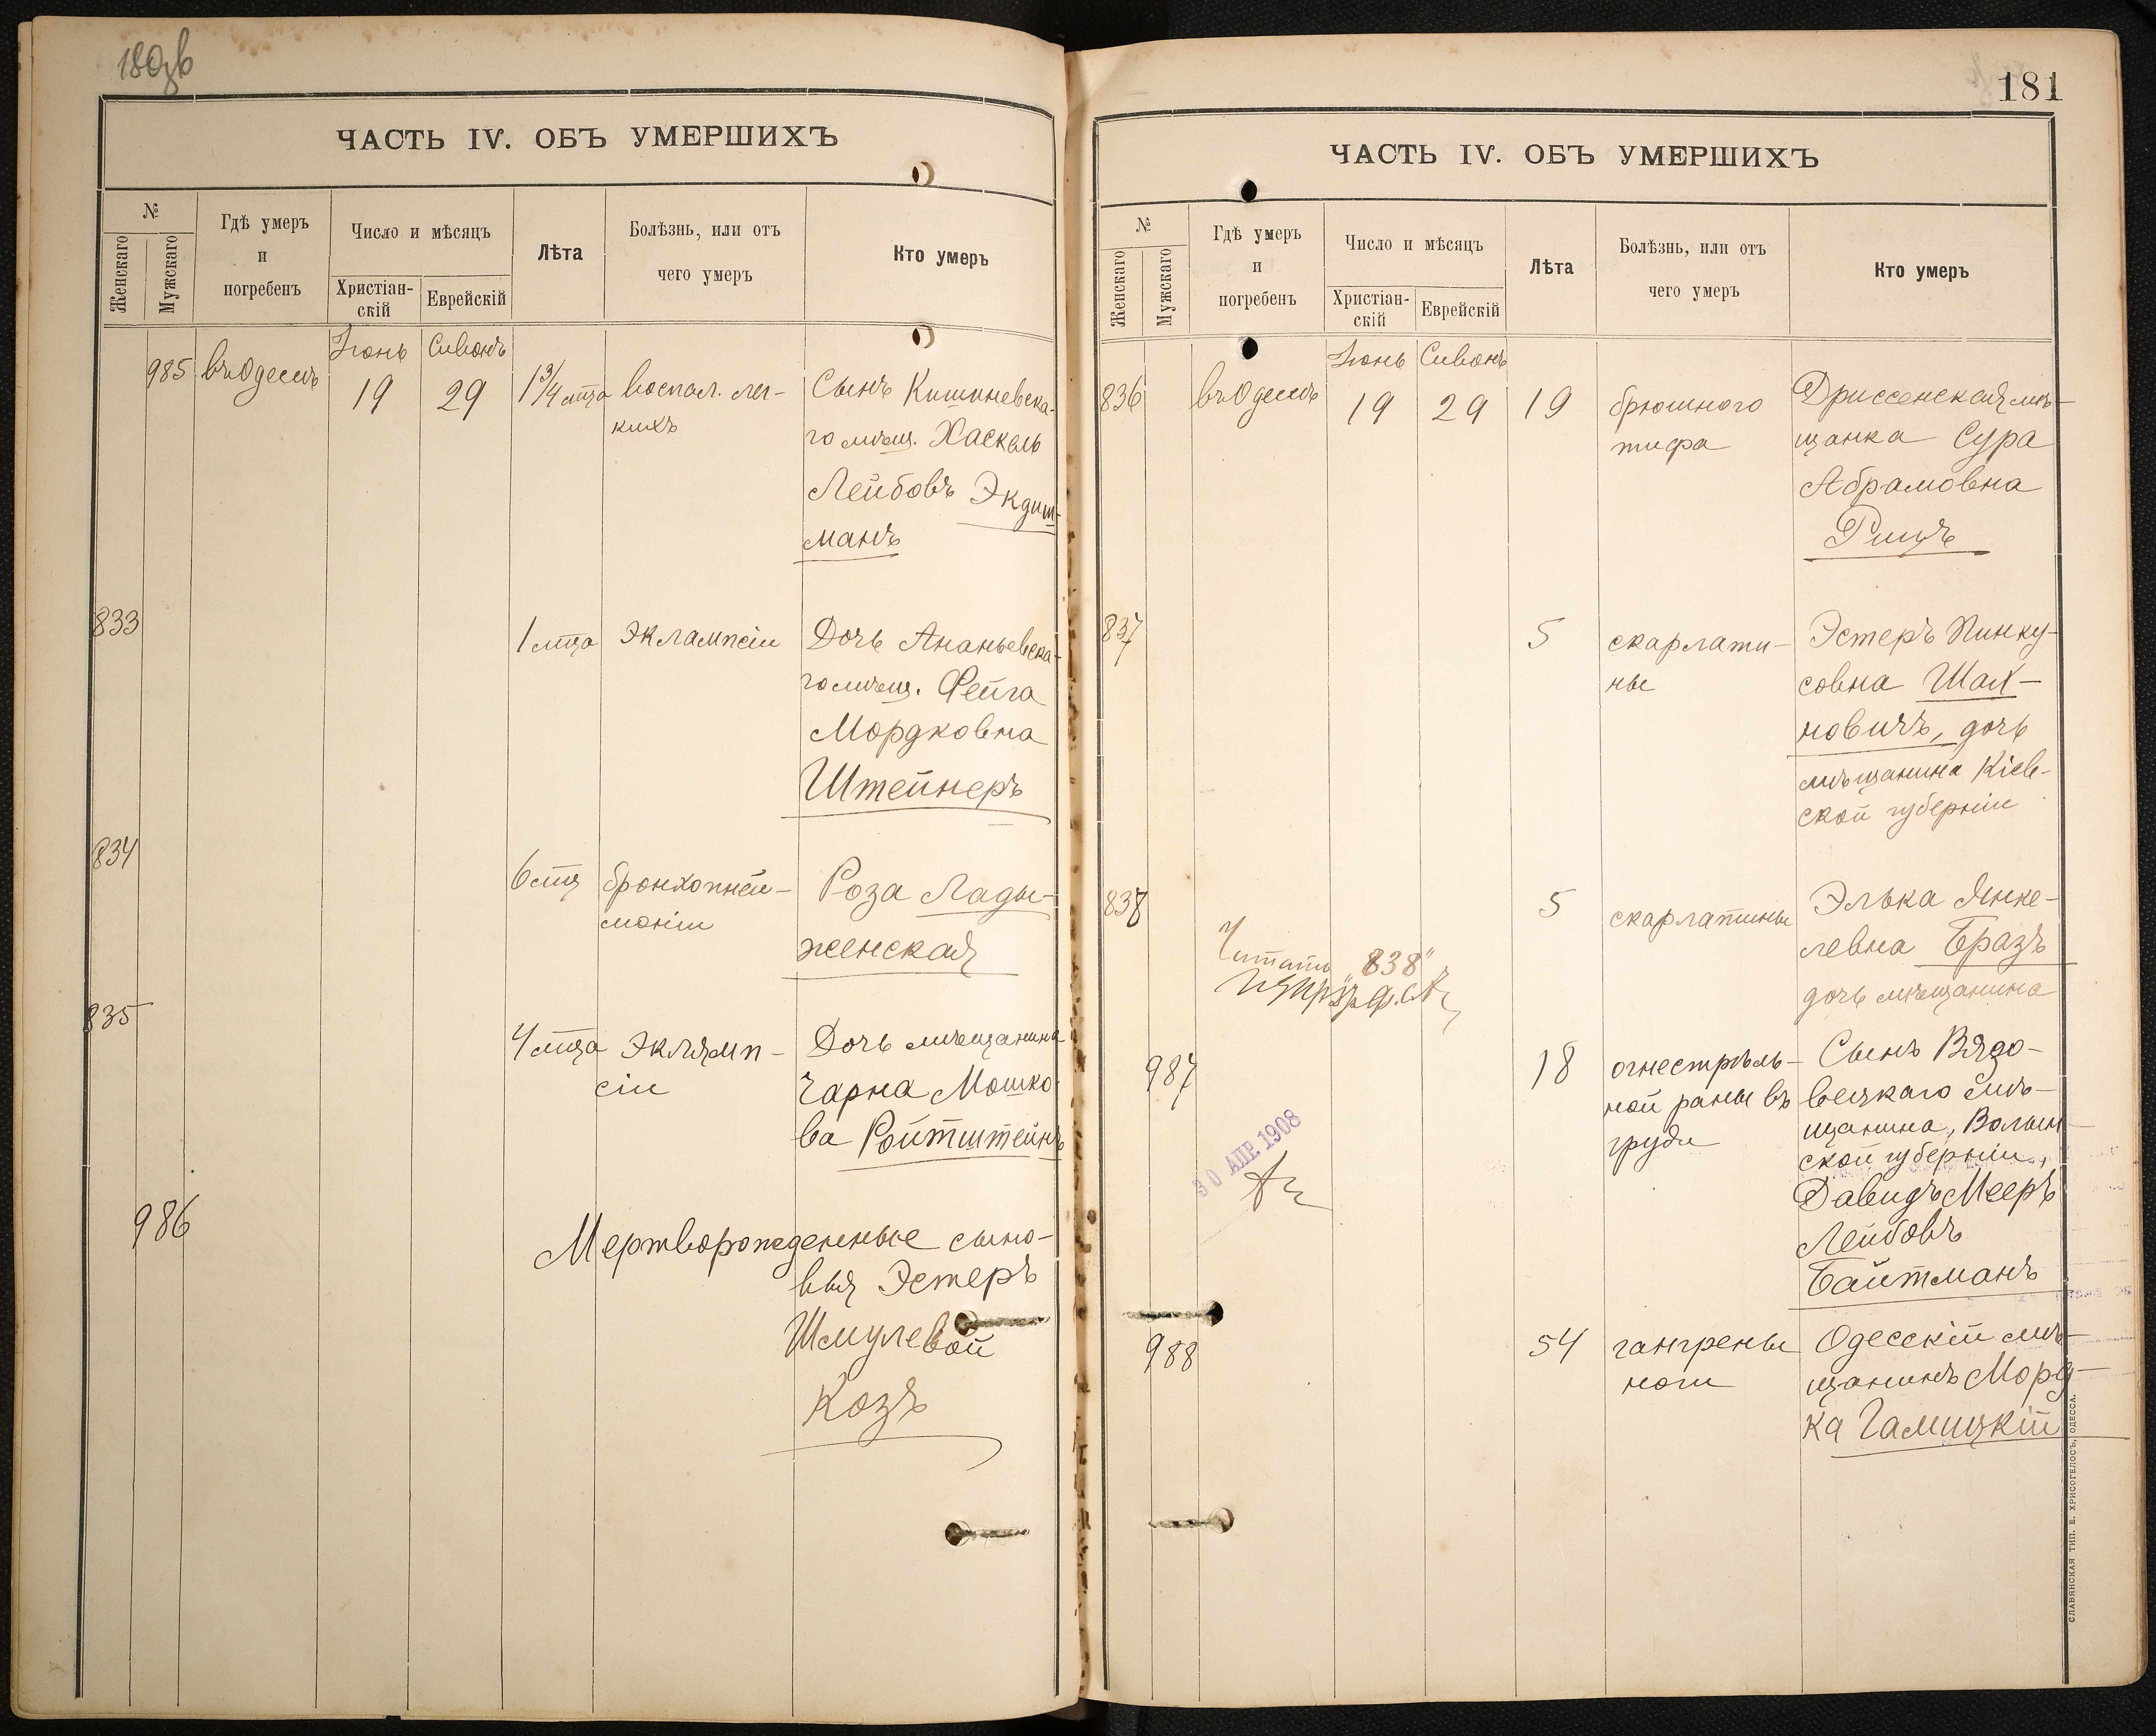 180об
ЧАСТЬ IV. ОБЪ УМЕРШИХЪ
№
Женскаго
Мужскаго
Гдѣ умеръ
и
погребенъ
Число и мѣсяцъ
Христіан-
скій
Еврейскій
Лѣта
Болѣзнь, или отъ
чего умеръ
Кто умеръ
Іюнь Сивонъ
985 въ Одессѣ 19 29 1 3/4 мца воспал. лег-
кихъ
Сынъ Кишиневска-
го мѣщ. Хаскель
Лейбовъ Экдиш-
манъ
833 1 мца Эклампсіи
Дочь Ананьевска-
го мѣщ. Фейга
Мордковна
Штейнеръ
834 6 мц бронхопней-
моніи
Роза Лады-
женская
835 4 мца Эклямп-
сіи
Дочь мѣщанина
Чарна Мошко-
ва Ройтштейнъ
986 Мертворожденные сыно-
вья Эстеръ
Шмулевой
Козъ
181
ЧАСТЬ IV. ОБЪ УМЕРШИХЪ
№
Женскаго
Мужскаго
Гдѣ умеръ
и
погребенъ
Число и мѣсяцъ
Христіан-
скій
Еврейскій
Лѣта
Болѣзнь, или отъ
чего умеръ
Кто умеръ
Іюнь Сивонъ
836 въ Одессѣ 19 29 19 брюшного
тифа
Дриссенская мѣ-
щанка Сура
Абрамовна
Рицъ
837 5 скарлати-
ны
Эстеръ Пинку-
совна Шах-
новичъ, дочь
мѣщанина Кіев-
ской губерніи
838 5 скарлатины
Элька Янке-
левна Бразъ
дочь мѣщанина
Читать „838"
987 18 огнестрѣль-
ной раны въ
груди
Сынъ Вязо-
вецкаго мѣ-
щанина, Волын-
ской губерніи,
Давидъ Мееръ
Лейбовъ
Байтманъ
30 АПР. 1908
988 54 гангрены
ноги
Одесскій мѣ-
щанинъ Морд-
ка Галицкій
СЛАВЯНСКАЯ ТИП. Е. ХРИСОГЕЛОСЪ, ОДЕССА.